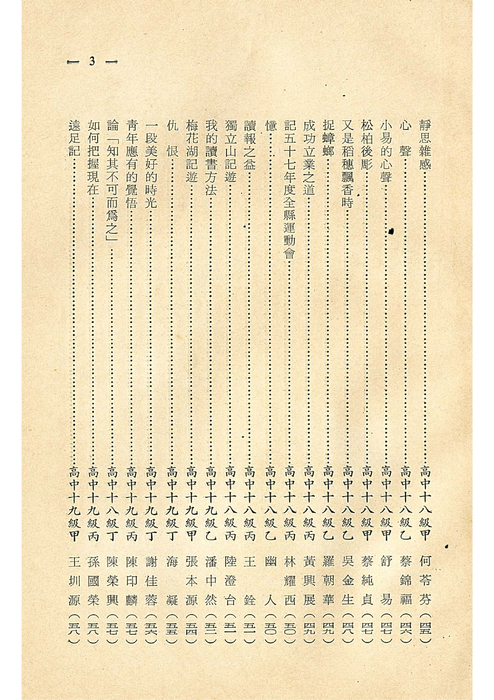 — 3 —
靜思雜感……高中十八級甲 何荅芬(四五)
心聲……高中十八級乙 蔡錦福(四六)
小易的心聲……高中十八級甲 舒易(四七)
松柏後彫……高中十八級甲 蔡純貞(四七)
又是稻穗飄香時……高中十八級乙 吳金生(四八)
捉蟑螂……高中十八級乙 羅朝華(四九)
成功立業之道……高中十八級丙 黃興展(四九)
記五十七年度全縣運動會……高中十八級丙 林耀西(五〇)
憶……高中十八級乙 幽人(五〇)
讀報之益……高中十八級丙 王銓(五一)
獨立山記遊……高中十八級丙 陸澄台(五一)
我的讀書方法……高中十九級乙 潘中然(五二)
梅花湖記遊……高中十九級甲 張本源(五四)
仇恨……高中十八級丁 海凝(五五)
一段美好的時光……高中十九級丁 謝佳蓉(五六)
青年應有的覺悟……高中十九級丙 陳印麟(五七)
論「知其不可而爲之」……高中十八級丁 陳榮興(五七)
如何把握現在……高中十九級丙 孫國榮(五八)
遠足記……高中十九級甲 王圳源(五八)